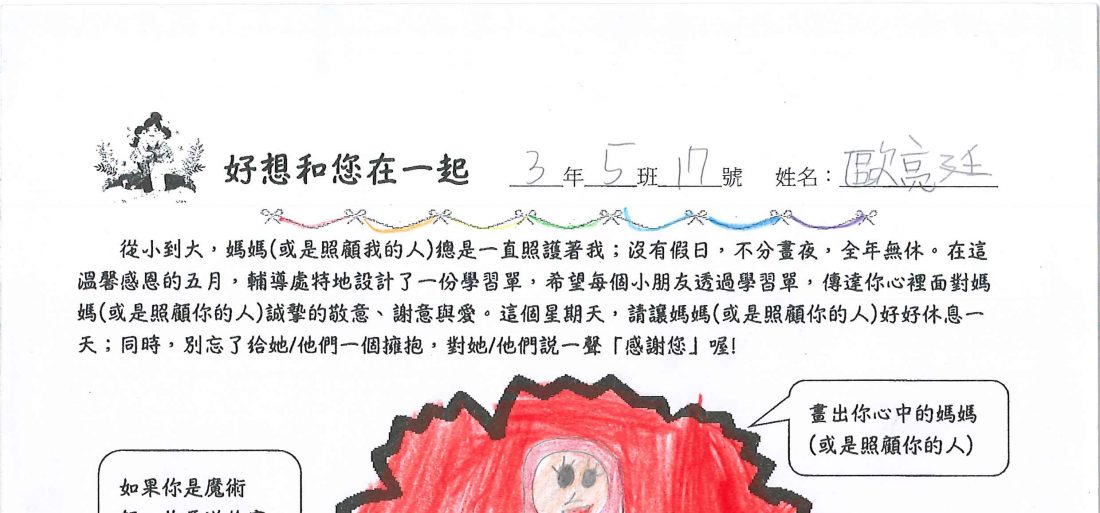 好想和您在一起 3年5班17號 姓名：歐亮廷
從小到大，媽媽(或是照顧我的人)總是一直照護著我；沒有假日，不分晝夜，全年無休。在這
溫馨感恩的五月，輔導處特地設計了一份學習單，希望每個小朋友透過學習單，傳達你心裡面對媽
媽(或是照顧你的人)誠摯的敬意、謝意與愛。這個星期天，請讓媽媽(或是照顧你的人)好好休息一
天；同時，別忘了給她/他們一個擁抱，對她/他們說一聲「感謝您」喔!
畫出你心中的媽媽
(或是照顧你的人)
如果你是魔術